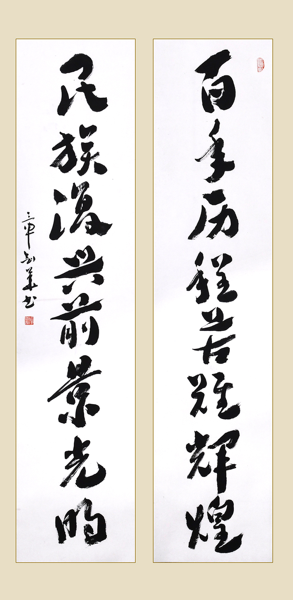 百年历程苦难辉煌
民族復兴前景光明
章剑华书